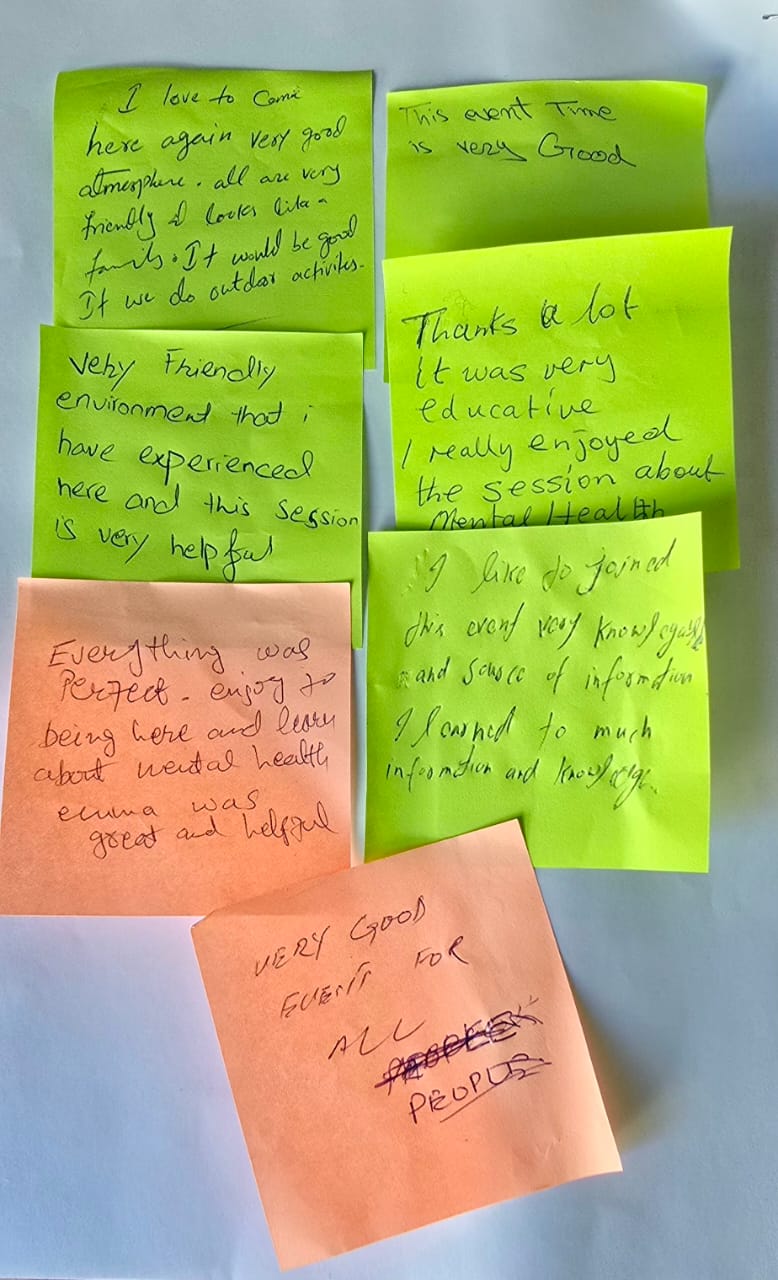 I love to Come
here again very good
atmosphere. all are very
friendly & looks like a
family. It would be good
If we do outdoor activites.
This event Time
is very Good
Very Friendly
environment that i
have experienced
here and this session
is very helpful
Thanks a lot
it was very
educative
I really enjoyed
the session about
Mental Health
Everything was
Perfect. enjoy to
being here and learn
about mental health
emma was
great and helpful
I like to joined
this event very knowlegable
and source of information
I learned to much
information and knowledge.
VERY GOOD
EVENT FOR
ALL
PEOPLE